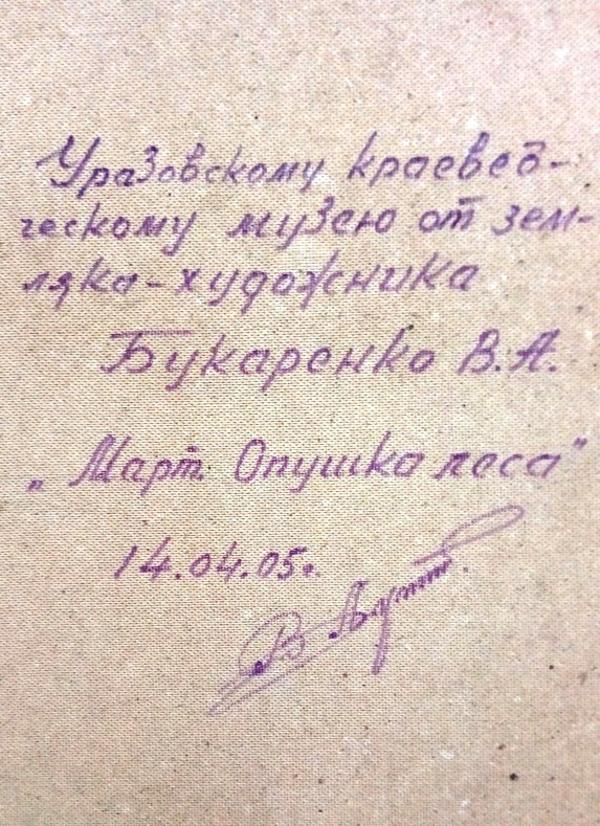 Уразовскому краевед-
ческому музею от зем-
ляка-художника
Букаренко В.А.
„Март. Опушка леса"
14.04.05г.